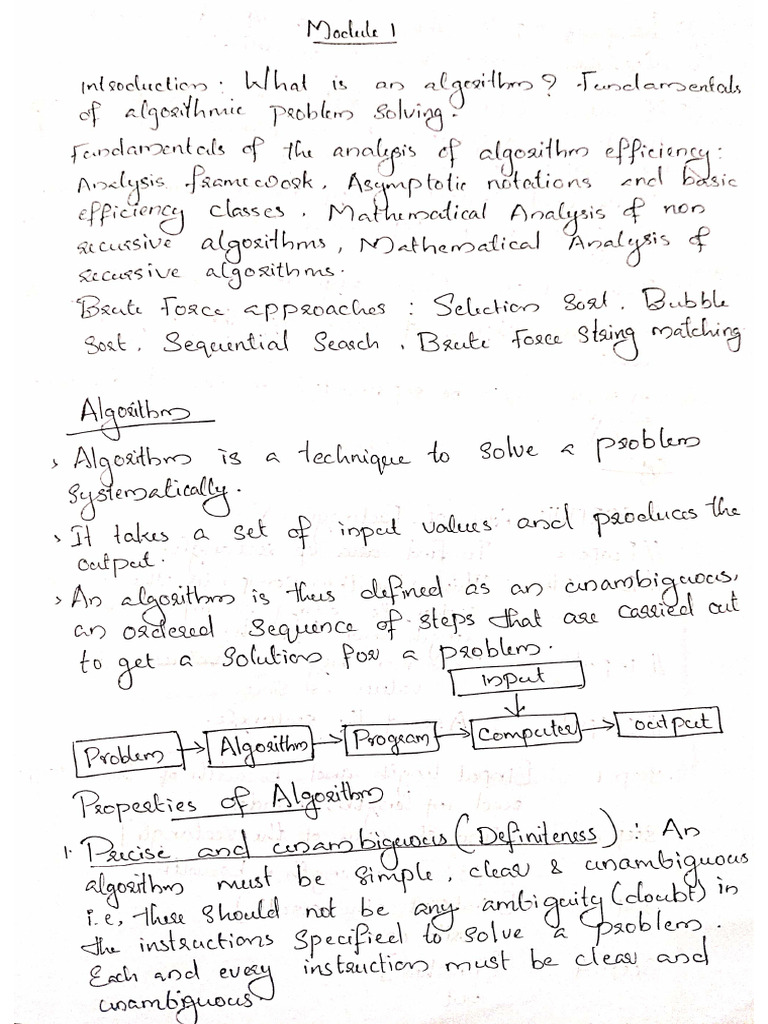 Module 1
Introduction: What is an algorithm? Fundamentals
of algorithmic problem solving.
Fundamentals of the analysis of algorithm efficiency:
Analysis framework, Asymptotic notations and basic
efficiency classes, Mathematical Analysis of non
recursive algorithms, Mathematical Analysis of
recursive algorithms.
Brute Force approaches: Selection Sort, Bubble
Sort, Sequential Search, Brute Force String matching
Algorithm
> Algorithm is a technique to solve a problem
systematically.
> It takes a set of input values and produces the
output.
> An algorithm is thus defined as an unambiguous,
an ordered sequence of steps that are carried out
to get a solution for a problem.
input
Problem → Algorithm → Program → Computer → output
Properties of Algorithm
1. Precise and unambiguous (Definiteness): An
algorithm must be simple, clear & unambiguous
i.e, there should not be any ambiguity (doubt) in
the instructions specified to solve a problem.
Each and every instruction must be clear and
unambiguous